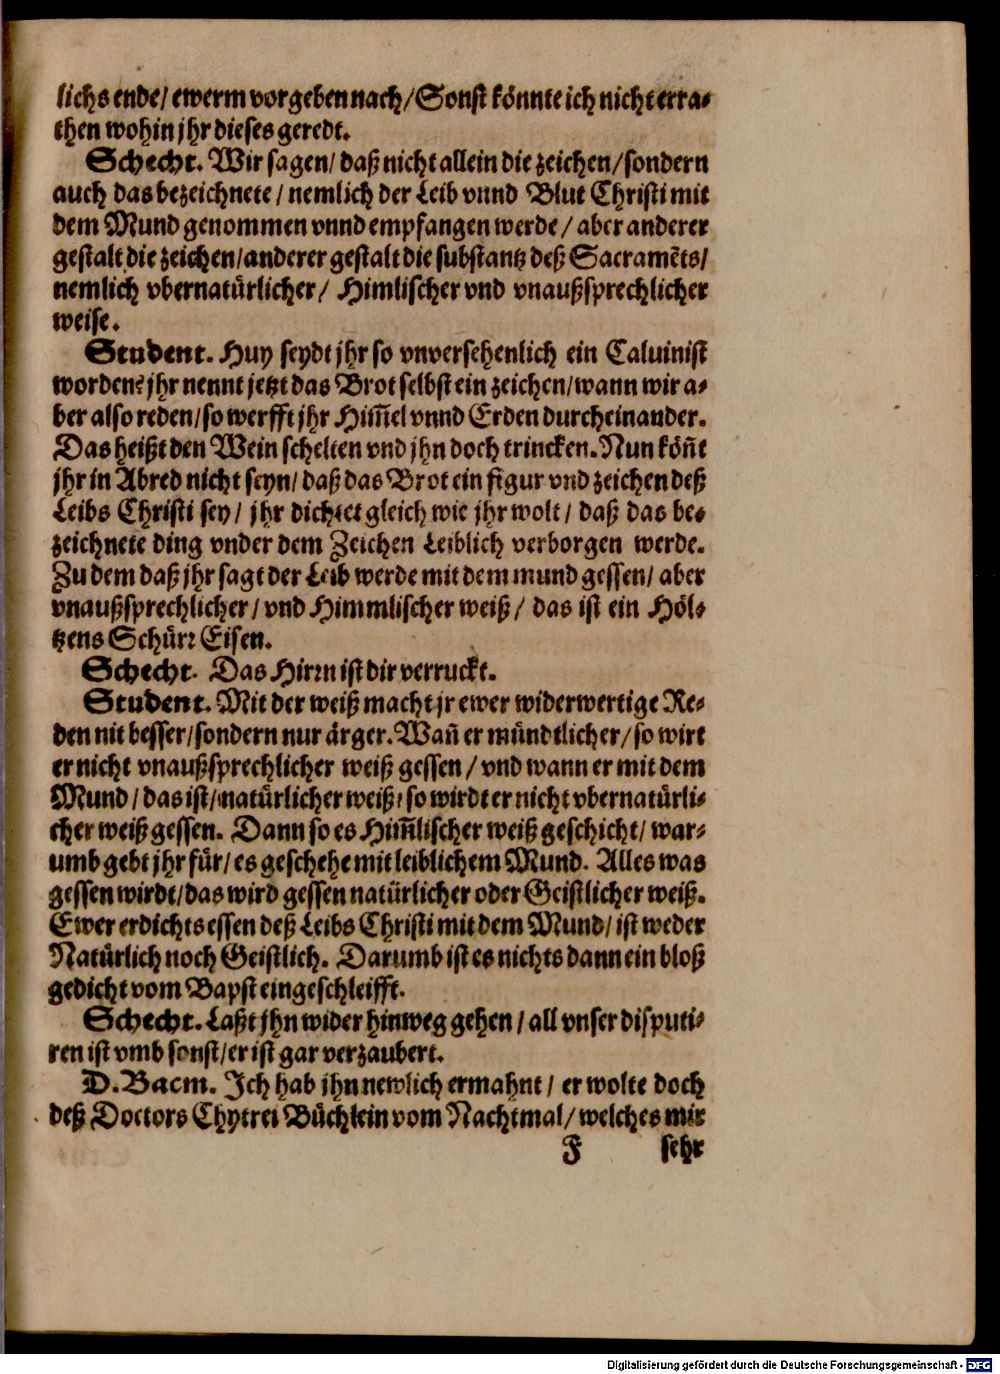 lichs ende/ ewerm vorgeben nach/ Sonst könnte ich nicht erra-
then wohin jhr dieses geredt.
Schecht. Wir sagen/ daß nicht allein die zeichen/ sondern
auch das bezeichnete/ nemlich der Leib vnnd Blut Christi mit
dem Mund genommen vnnd empfangen werde/ aber anderer
gestalt die zeichen/ anderer gestalt die substantz deß Sacramēts/
nemlich vbernatürlicher/ Himlischer vnd vnaußsprechlicher
weise.
Student. Huy seydt jhr so vnversehenlich ein Caluinist
worden? jhr nennt jetzt das Brot selbst ein zeichen/ wann wir a-
ber also reden/ so werfft jhr Him̄el vnnd Erden durcheinander.
Das heißt den Wein schelten vnd jhn doch trincken. Nun kön̄t
jhr in Abred nicht seyn/ daß das Brot ein figur vnd zeichen deß
Leibs Christi sey/ jhr dichtet gleich wie jhr wolt/ daß das be-
zeichnete ding vnder dem Zeichen Leiblich verborgen werde.
Zu dem daß jhr sagt der Leib werde mit dem mund gessen/ aber
vnaußsprechlicher/ vnd Himmlischer weiß/ das ist ein Höl-
tzens Schürr Eisen.
Schecht. Das Hirrn ist dir verruckt.
Student. Mit der weiß macht jr ewer widerwertige Re-
den nit besser/ sondern nur ärger. Wan̄ er mündtlicher/ so wirt
er nicht vnaußsprechlicher weiß gessen/ vnd wann er mit dem
Mund/ das ist/ natürlicher weiß/ so wirdt er nicht vbernatürli-
cher weiß gessen. Dann so es Him̄lischer weiß geschicht/ war-
umb gebt jhr für/ es geschehe mit leiblichem Mund. Alles was
gessen wirdt/ das wird gessen natürlicher oder Geistlicher weiß.
Ewer erdichts essen deß Leibs Christi mit dem Mund/ ist weder
Natürlich noch Geistlich. Darumb ist es nichts dann ein bloß
gedicht vom Bapst eingeschleifft.
Schecht. Laßt jhn wider hinweg gehen/ all vnser disputi-
ren ist vmb sonst/ er ist gar verzaubert.
D. Bacm. Ich hab jhn newlich ermahnt/ er wolte doch
deß Doctors Chytrei Büchlein vom Nachtmal/ welches mir
F sehr
Digitalisierung gefördert durch die Deutsche Forschungsgemeinschaft - DFG